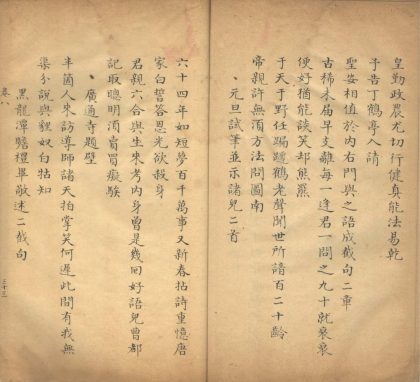 皇勤政農尤切行健真能法易乾
予告丁鶴亭入請
聖安相值於內右門與之語成截句二章
古稀未屆早支離每一逢君一問之九十就衰衰
便好猶能談笑却熊羆
于天于野任蹁躚鶴老聲聞世所諳百二十齡
帝親許無須方法問圖南
、元旦試筆並示諸兒二首
六十四年如短夢百千萬事又新春拈詩重憶唐
家白誓答恩光欲救身
君親六合與生來考內身曾是幾回好語兒曹都
記取聰明須賣蜀癡騃
、廣通寺題壁
半箇人來訪導師諸天拍掌笑何遲此間有我無
渠分說與貍奴白牯知
黑龍潭賽禮畢敬述二截句
卷八
三十三